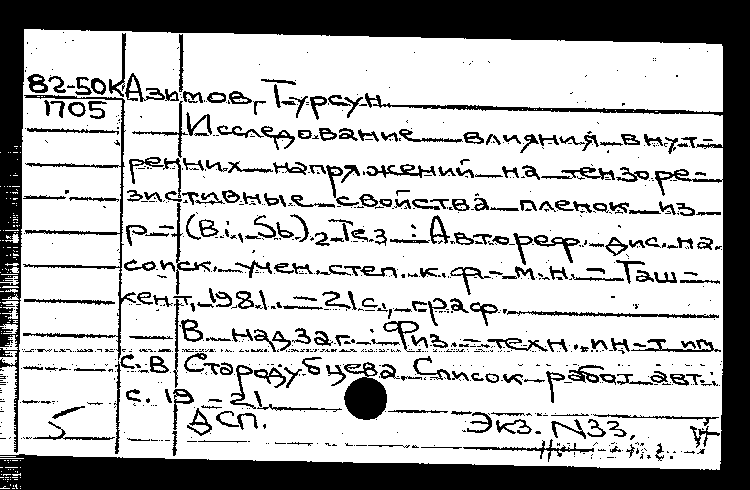 82-50К Азимов, Турсун.
1705
Исследование влияния внут-
ренних напряжений на тензоре-
зистивные свойства пленок из
p-(Bi, Sb)₂Te₃ : Автореф. дис. на
соиск. учен. степ. к. ф.-м. н. - Таш-
кент, 1981. - 21 с., граф.
В надзаг.: Физ.-техн. ин-т им.
С.В. Стародубцева. Список работ авт.:
с. 19-21.
ДСП. Экз. N33.
5